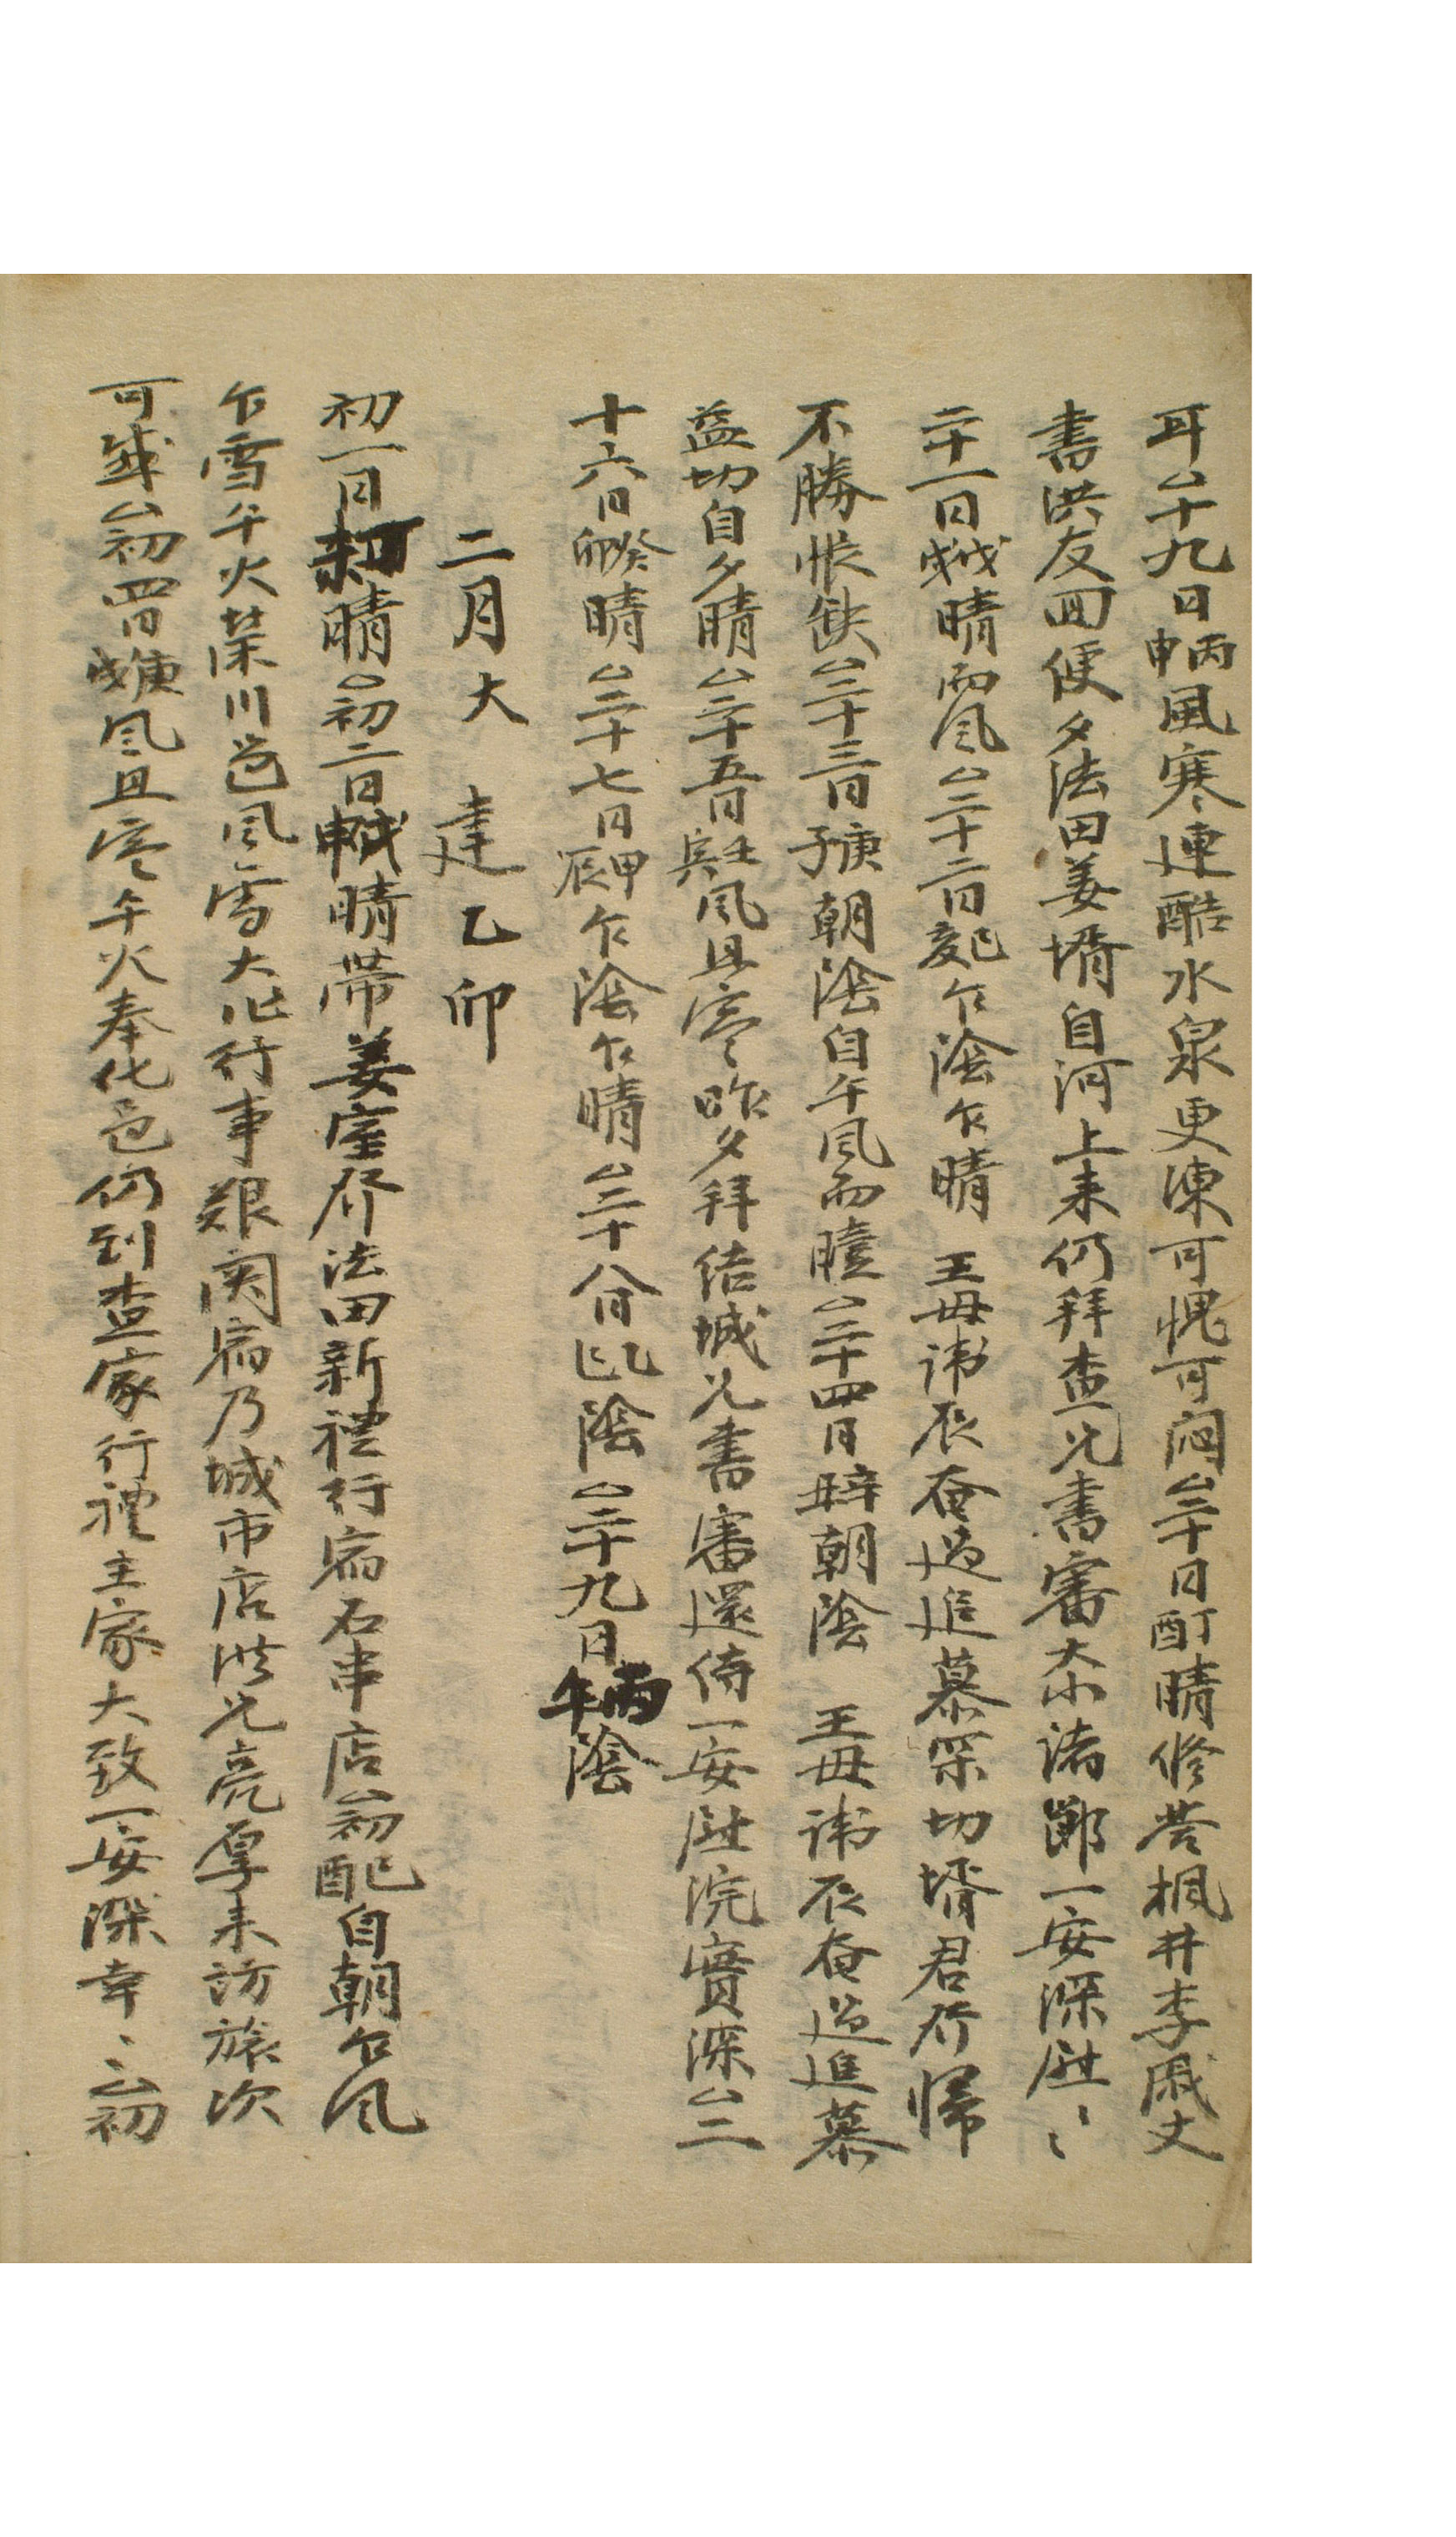 耳△十九日丙申風寒連酷水泉更凍可愧可悶△二十日丁酉晴修答楓井李戚丈
書洪友回便夕法田姜壻自河上来仍拜査兄書審大小諸節一安深慰〻
二十一日戊戌晴而風△二十二日己亥乍陰乍晴 王母諱辰奄過追慕罙切壻君行歸
不勝悵缺△二十三日庚子朝陰自午風而曀△二十四日辛丑朝陰 王母諱辰奄過追慕
益切自夕晴△二十五日壬寅風且寒昨夕拜結城兄書審還侍一安慰浣實深△二
十六日癸卯晴△二十七日甲辰乍陰乍晴△二十八日乙巳陰△二十九日丙午陰
二月大 建乙卯
初一日丁未晴△初二日戊申晴帶姜室作法田新禮行宿石串店△初三日己酉自朝乍風
乍雪午火榮川邑風雪大作行事艱関宿乃城市店洪兄亮厚来訪旅次
可感△初四日庚戌風且寒午火奉化邑仍到査家行禮主家大致一安深幸〻△初